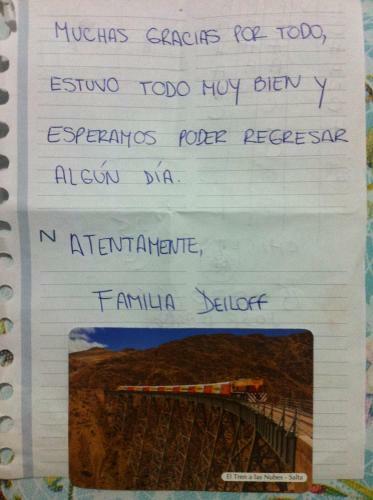 MUCHAS GRACIAS POR TODO,
ESTUVO TODO MUY BIEN Y
ESPERAMOS PODER REGRESAR
ALGÚN DÍA.
N ATENTAMENTE,
FAMILIA DEILOFF
El Tren a las Nubes - Salta